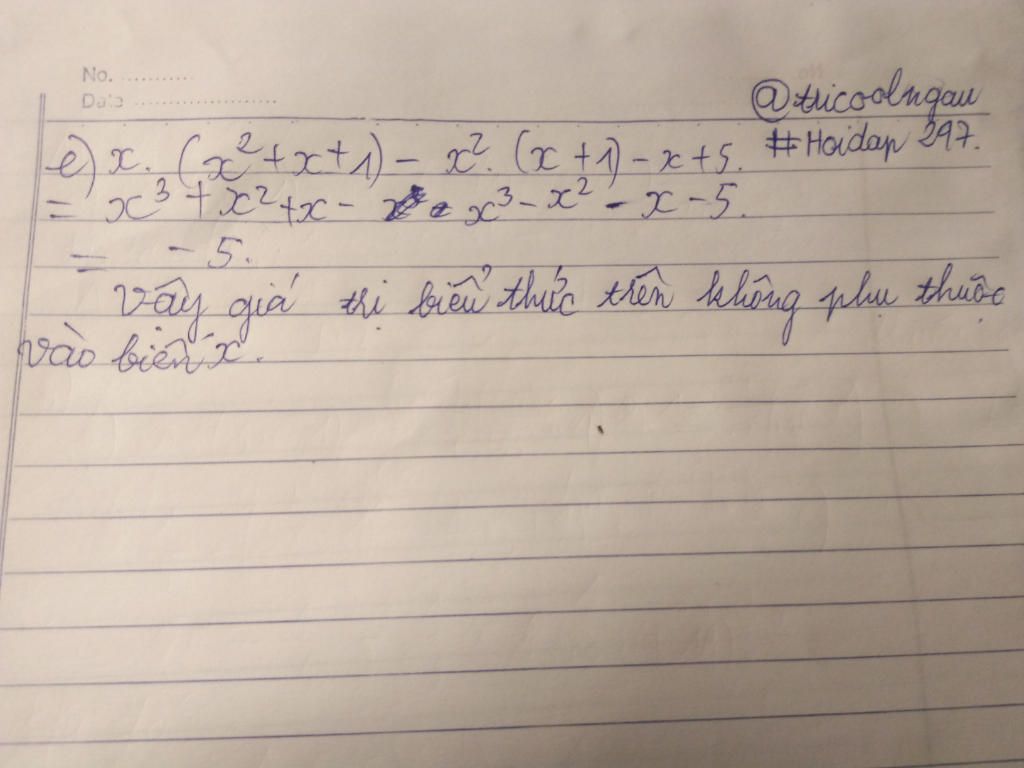 No. ...........
Date ....................
@tricoolngau
#Hoidap 297.
e) x. (x² + x + 1) - x². (x + 1) - x + 5.
= x³ + x² + x - x³ - x² - x - 5.
= - 5.
Vậy giá trị biểu thức trên không phụ thuộc
vào biến x.